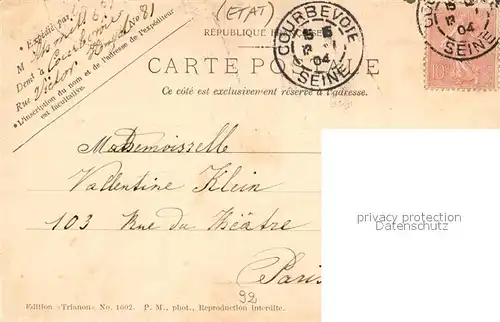 (ETAT)
* Expédié par
M
Demt à Courbevoie
Rue Victor Hugo No 81
* L'inscription du nom et de l'adresse de l'expéditeur
est facultative.
RÉPUBLIQUE FRANÇAISE
CARTE POSTALE
Ce côté est exclusivement réservé à l'adresse.
COURBEVOIE
04
SEINE
10
04
SEINE
Mademoisselle
Vallentine Klein
103 Rue du Théâtre
Paris
92
privacy protection
Datenschutz
Edition «Trianon» No. 1002. P. M., phot., Reproduction interdite.